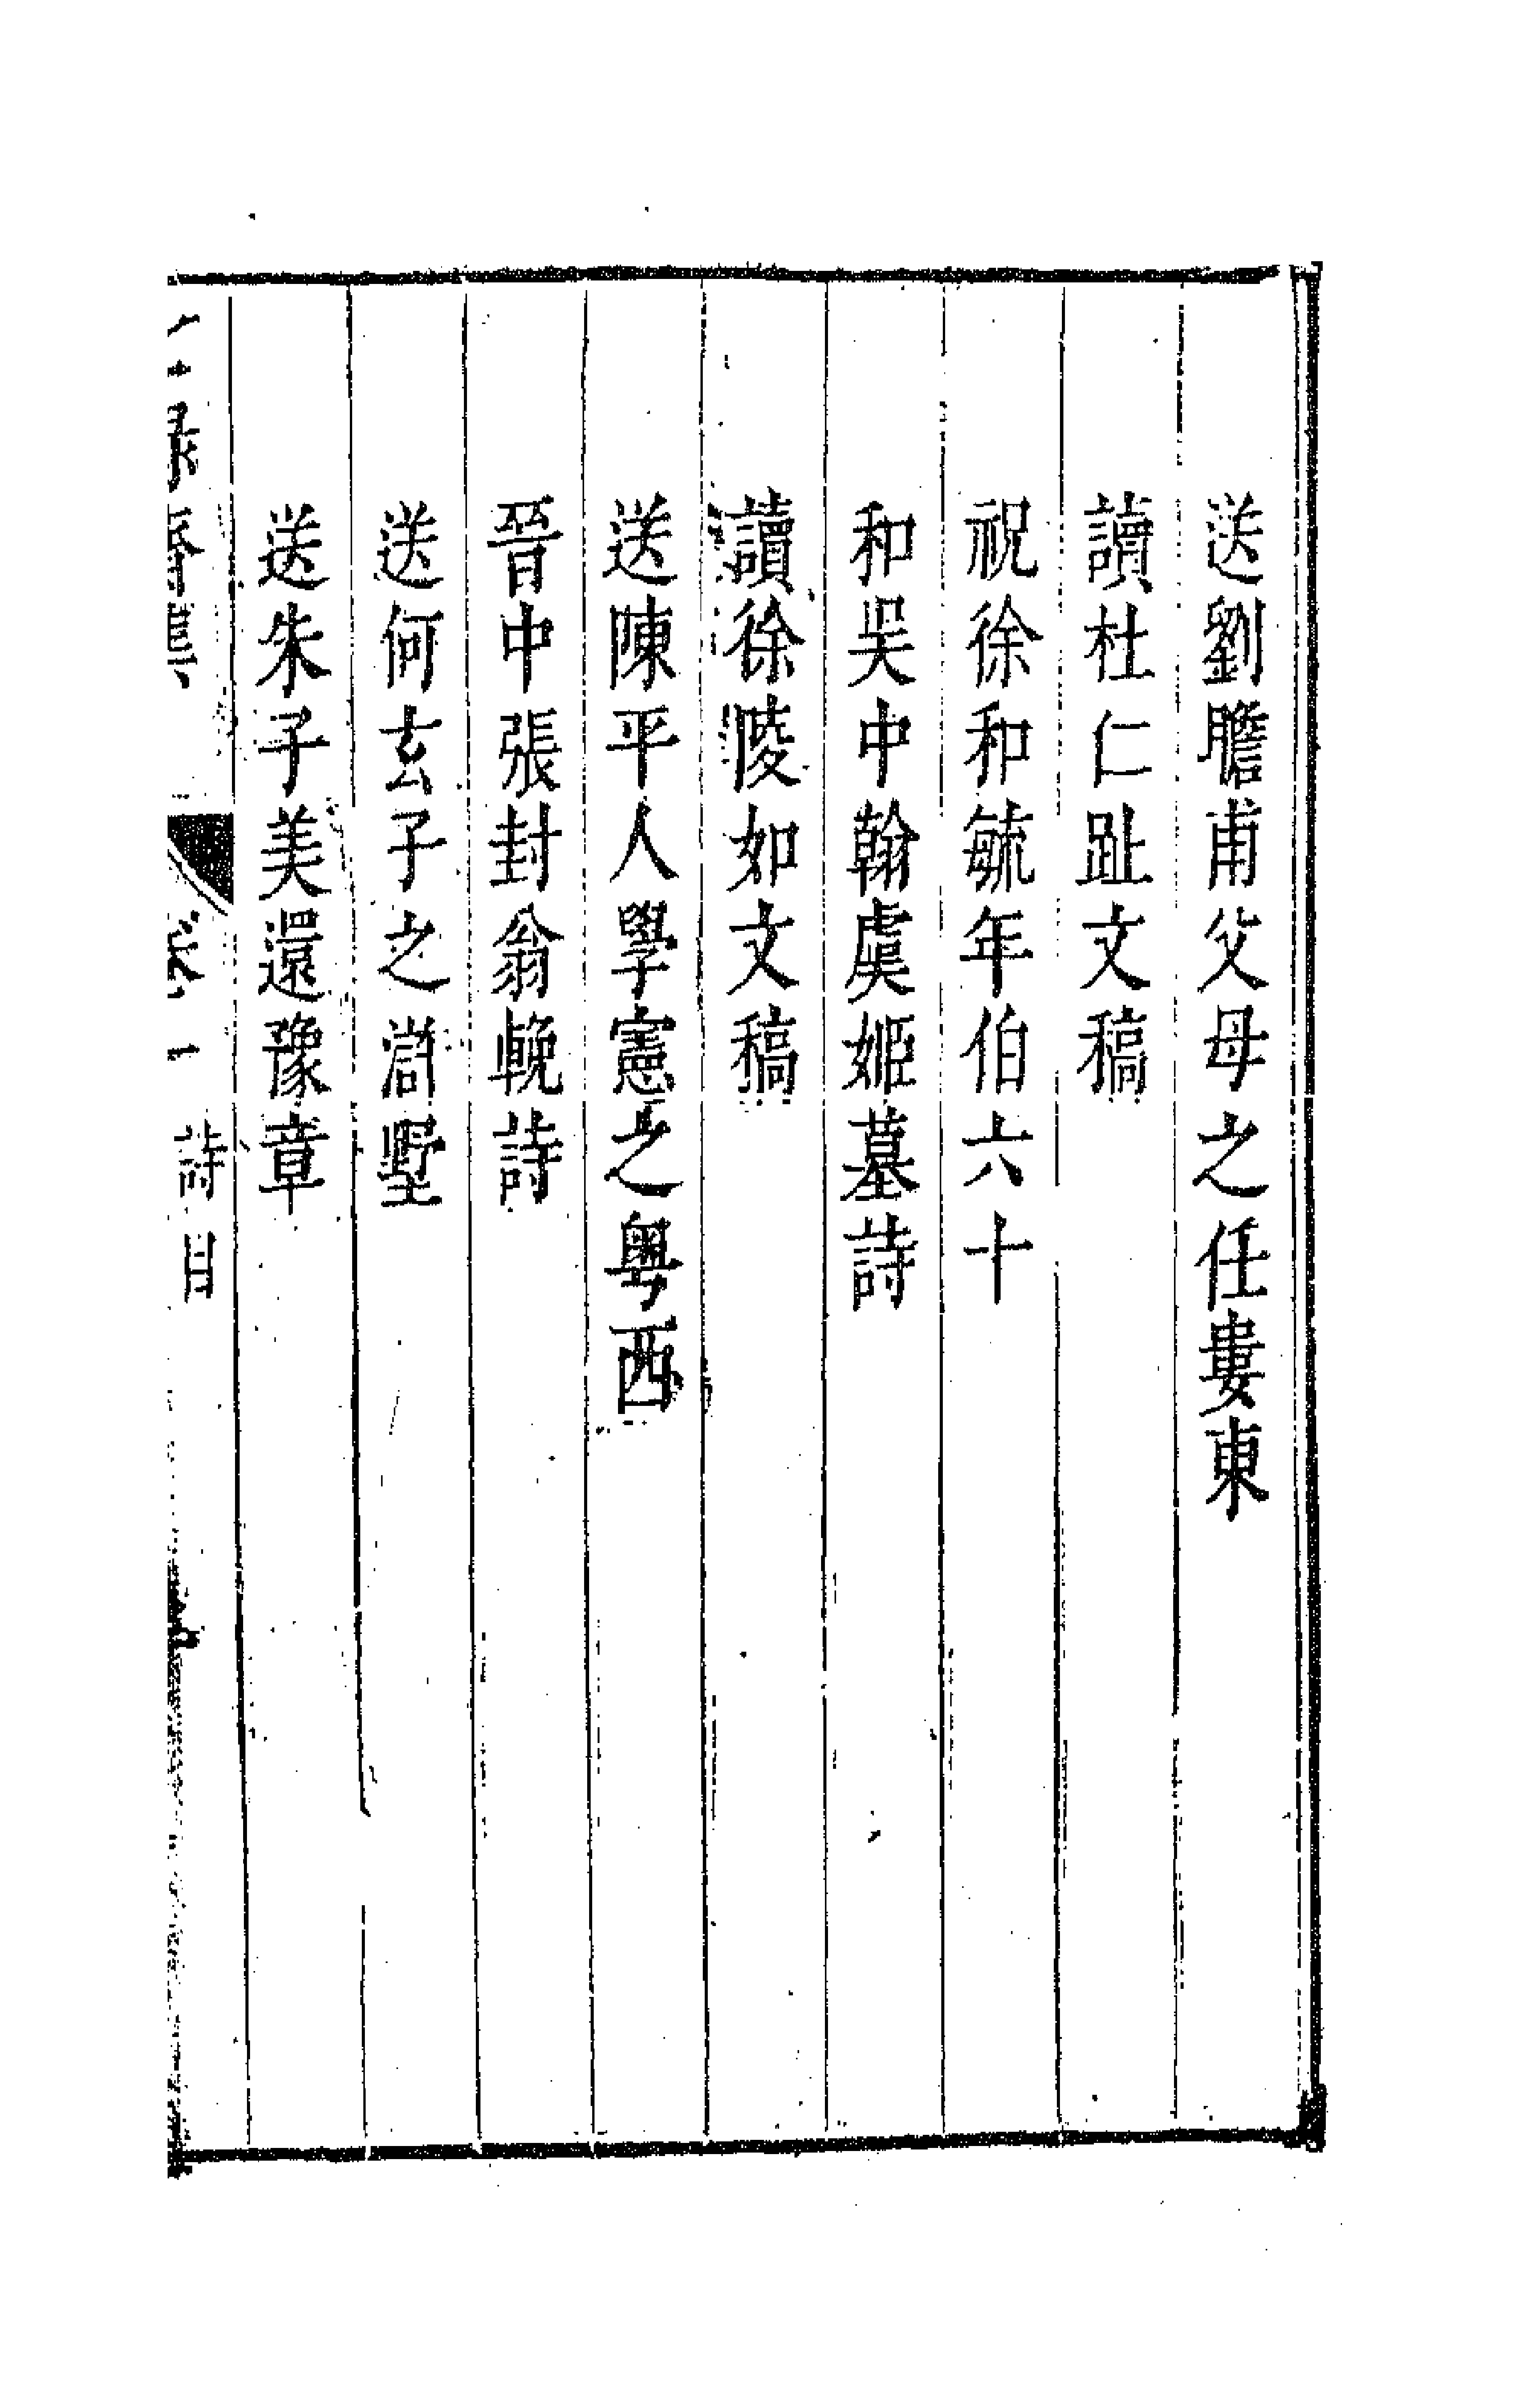 送劉瞻甫父母之任婁東
讀杜仁趾文稿
祝徐和毓年伯六十
和吴中翰虞姬墓詩
讀徐陵如文稿
送陳平人學憲之粤西
晉中張封翁輓詩
送何玄子之滸墅
送朱子美還豫章
詩目